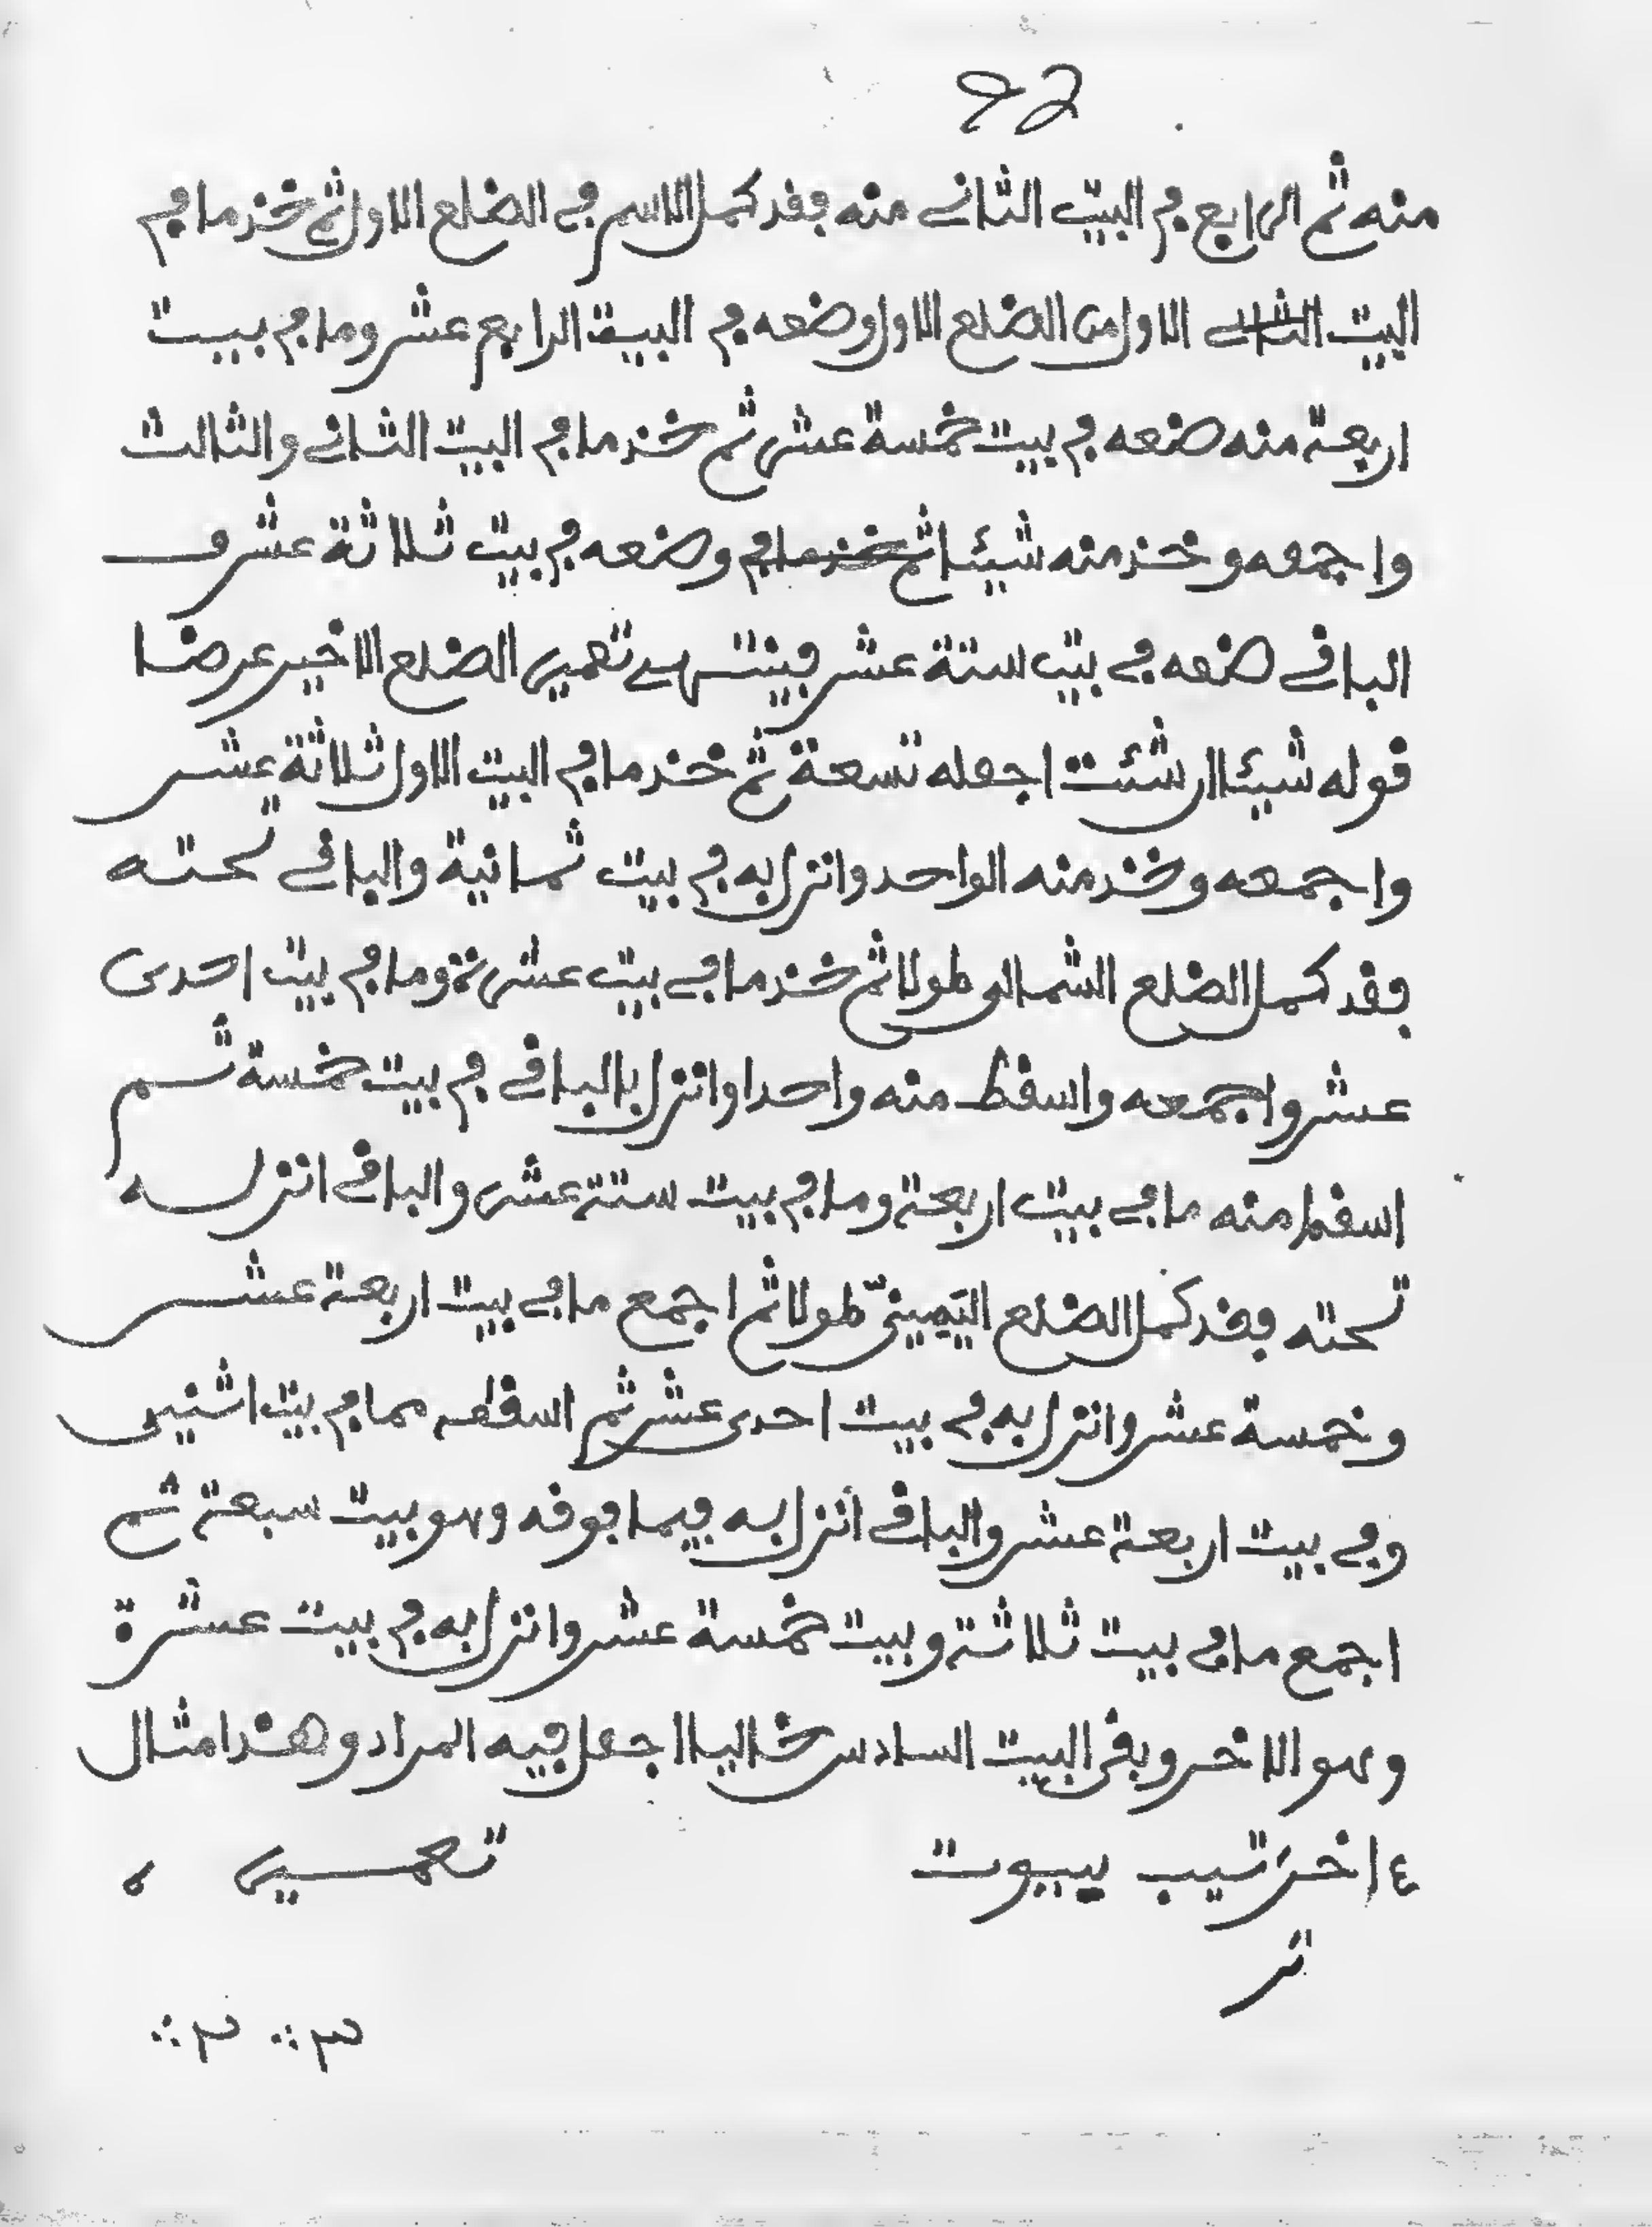 منه ثم الرابع في البيت الثاني منه فقد كمل الاسم في الضلع الاول ثم خذ ما في
البيت الثاني الاول من الضلع الاول وضعه في البيت الرابع عشر وما في بيت
اربعة منه ضعه في بيت خمسة عشر ثم خذ ما في البيت الثاني والثالث
واجمعه وخذ منه شيئا ثم خذ ما في وضعه في بيت ثلاثة عشر و
الباقي ضعه في بيت ستة عشر فينتهى تعمير الضلع الاخير عرضا
قوله شيئا ان شئت اجعله تسعة ثم خذ ما في البيت الاول ثلاثة عشر
واجمعه وخذ منه الواحد وانزل به في بيت ثمانية والباقي تحته
فقد كمل الضلع الشمالى طولا ثم خذ ما في بيت عشرة وما في بيت احدى
عشر واجمعه واسقط منه واحدا وانزل بالباقي في بيت خمسة ثم
اسقط منه ما في بيت اربعة وما في بيت ستة عشر والباقي انزله
تحته فقد كمل الضلع اليَمِينىّ طولا ثم اجمع ما في بيت اربعة عشر
وخمسة عشر وانزل به في بيت احدى عشر ثم اسقطه مما في بيت اثنين
وفي بيت اربعة عشر والباقي انزل به فيما فوقه وهو بيت سبعة ثم
اجمع ما في بيت ثلاثة وبيت خمسة عشر وانزل به في بيت عشرة
وهو الاخر وبقى البيت السادس خاليا اجعل فيه المراد وهذا مثال
اخر تيب بيوت تعمير ه
تر